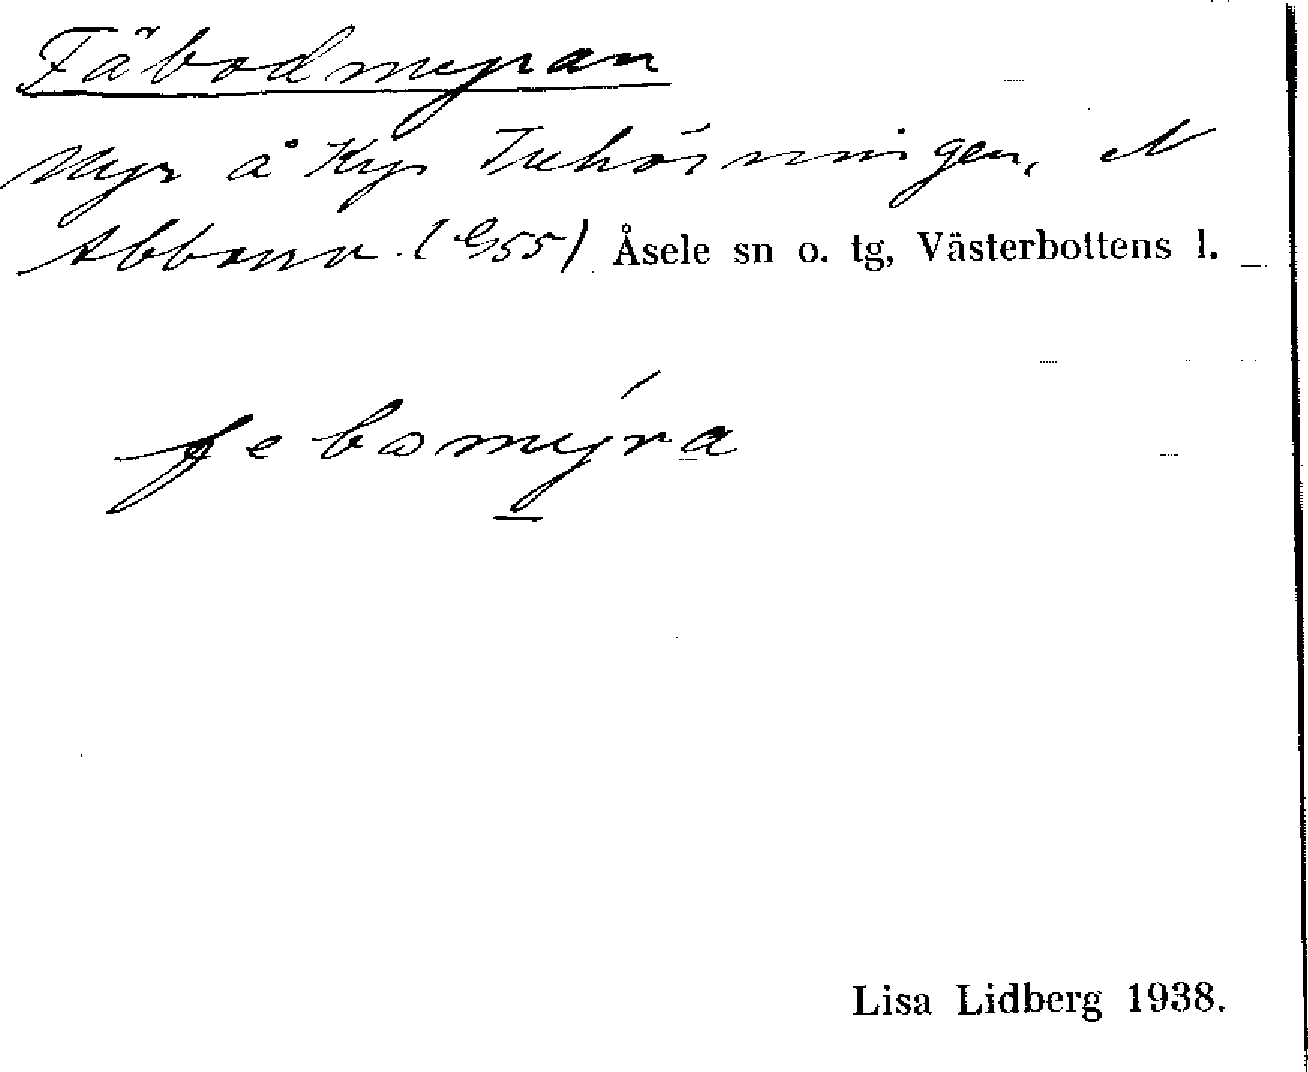 Fäbodmyran
Myr å Krp Trehörningen, N
Abborrv. (G55) Åsele sn o. tg, Västerbottens l.
febomýra
Lisa Lidberg 1938.